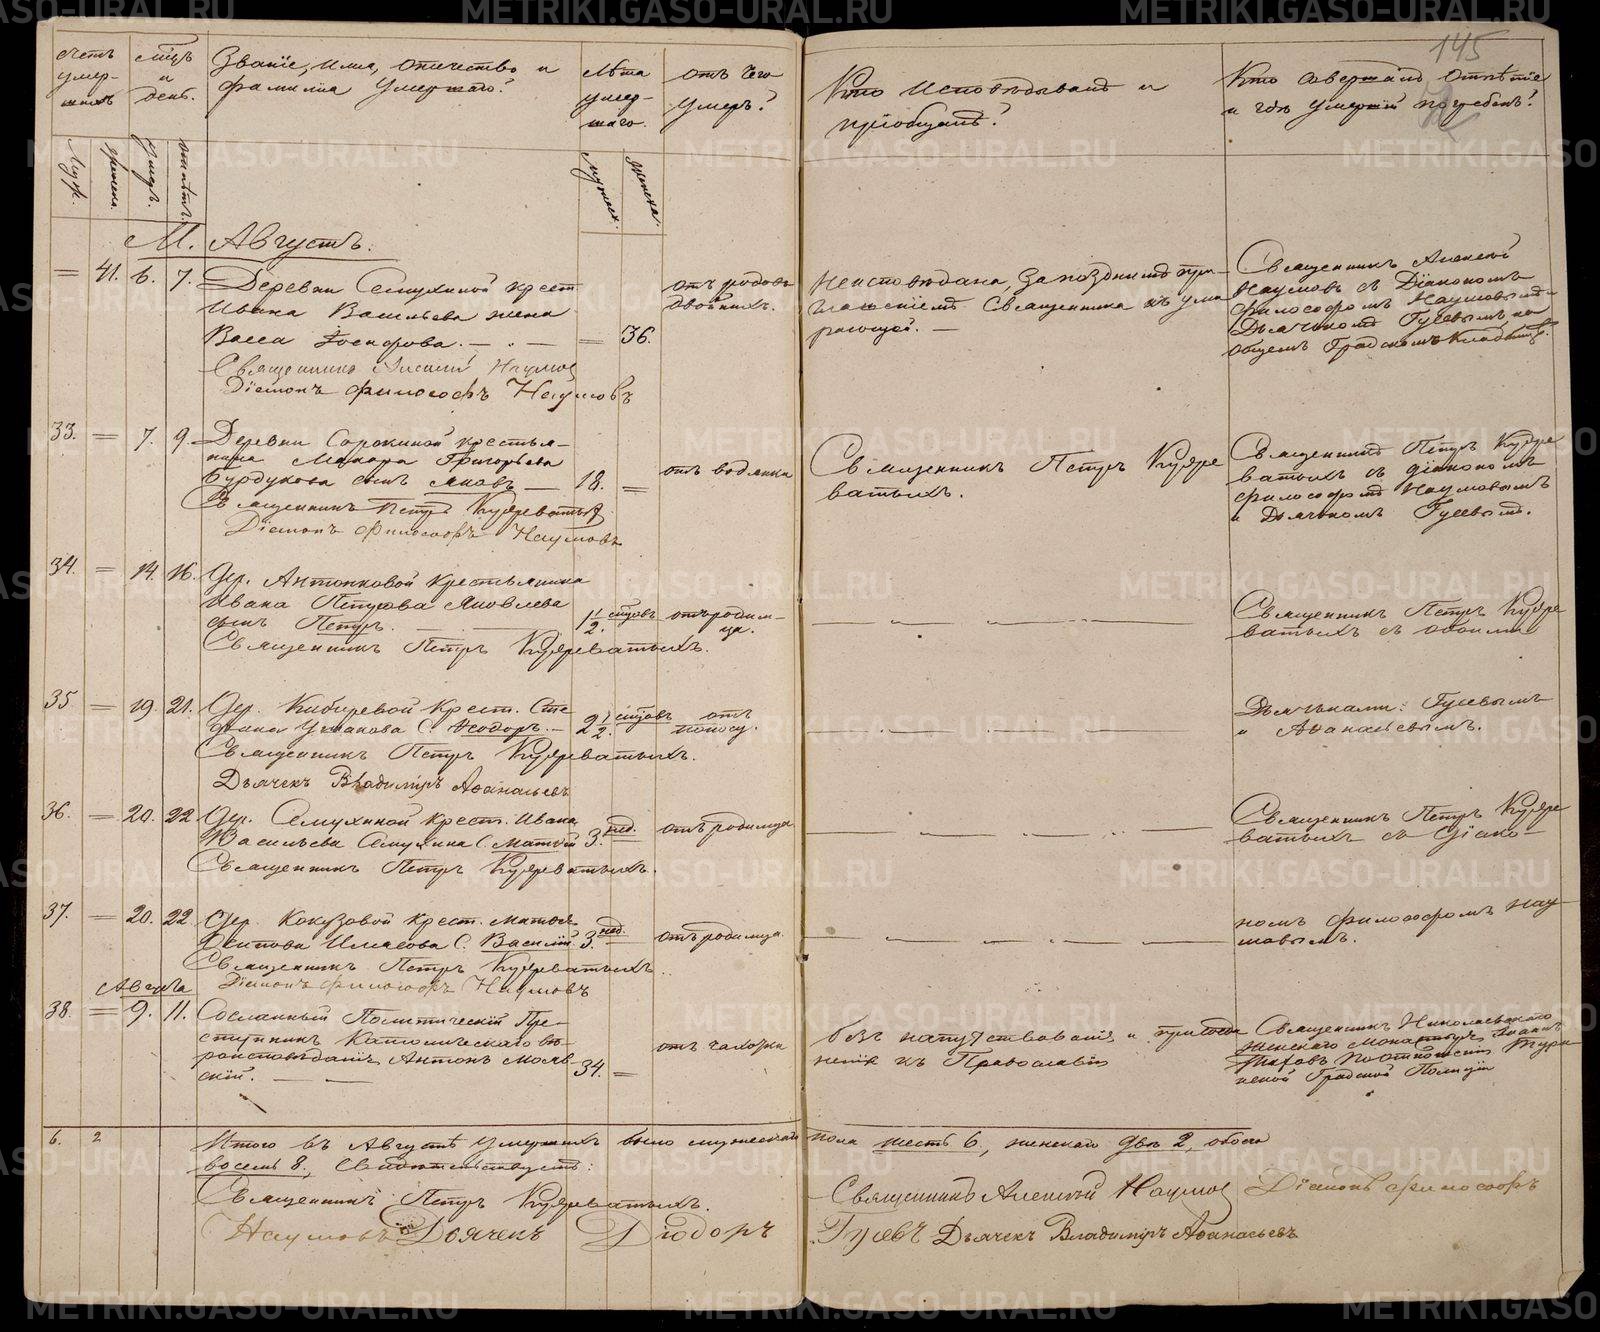 145
Счетъ умер-шихъ
Мцъ и день.
Званіе, имя, отчество и фамилія умершаго?
Лѣта умер-шаго.
отъ чего умеръ?
Кто исповѣдывалъ и пріобщалъ?
Кто совершалъ отпѣтіе и гдѣ умершій погребенъ?
Муж.
женск.
умеръ.
мужеск.
женска.
М. Августъ.
= 41. 6. 7. Деревни Семухиной крест.
Ивана Васильева жена
Васса — = 36.
отъ родовъ
двойнихъ.
Неисповѣдана за позднимъ при-
глашеніемъ Священника къ уми
рающей. —
Священникъ Алексѣй
Наумовъ съ Діакономъ
философомъ Наумовымъ
Дьячкомъ Гусевымъ на
общемъ Градскомъ Кладбищѣ.
Священникъ Алексѣй Наумов
Діаконъ философъ Наумовъ
33. = 7. 9. Деревни Сорокиной крестья-
нина Макара Григорьева
Бурдукова сынъ Яковъ — 18. =
отъ водянки
Священникъ Петръ Кудре
ватыхъ.
Священникъ Петръ Кудре
ватыхъ съ діакономъ
философомъ Наумовымъ
и Дьячкомъ Гусевымъ.
Священникъ Петръ Кудреватых
Діаконъ философъ Наумовъ
34. = 14. 16. Дер. Антонковой крестьянина
Ивана Петрова Яковлева
сынъ Петръ. — 1 1/2 мцовъ
отъ родим-
ца.
Священникъ Петръ Кудре
ватыхъ съ обоими
Священникъ Петръ Кудреватыхъ.
35 = 19. 21. Дер. Кибиревой крест. Сте
фана Ушакова с. Ѳеодоръ. — 2 1/2 мцовъ
отъ
поносу.
Дьячками: Гусевымъ
и Аѳанасьевымъ.
Священникъ Петръ Кудреватыхъ.
Дьячекъ Владиміръ Аѳанасьевъ
36. = 20. 22 Дер. Семухиной крест. Ивана
Васильева Семухина с. Матѳій 3. нед.
отъ родимца
Священникъ Петръ Кудре
ватыхъ съ Діако-
Священникъ Петръ Кудреватыхъ.
37. = 20. 22 Дер. Кокузовой крест. Матвѣя
Осипова с. Василій. 3. нед.
отъ родимца.
номъ философомъ Нау-
мовымъ.
Священникъ Петръ Кудреватыхъ
Діаконъ философъ Наумовъ
Августа
38. = 9. 11. Сосланный Политическій Пре-
ступникъ Католическаго вѣ-
роисповѣданія, Антонъ
скій. — 34. =
отъ чахотки
безъ напутствованія и присоеди
ненія къ Православію
Священникъ Николаевскаго
женскаго монастыря Іоаннъ
по отношенію Турин
ской Градской Полиціи
6. 2
Итого въ Августѣ умершихъ было мужескаго пола шесть 6., женскаго двѣ 2, обоего
восемь 8., Свидѣтельствуетъ:
Священникъ Петръ Кудреватыхъ.
Священникъ Алексѣй Наумов Діаконъ философъ
Наумовъ Дьячекъ Діодоръ Гусевъ Дьячекъ Владиміръ Аѳанасьевъ
METRIKI.GASO-URAL.RU